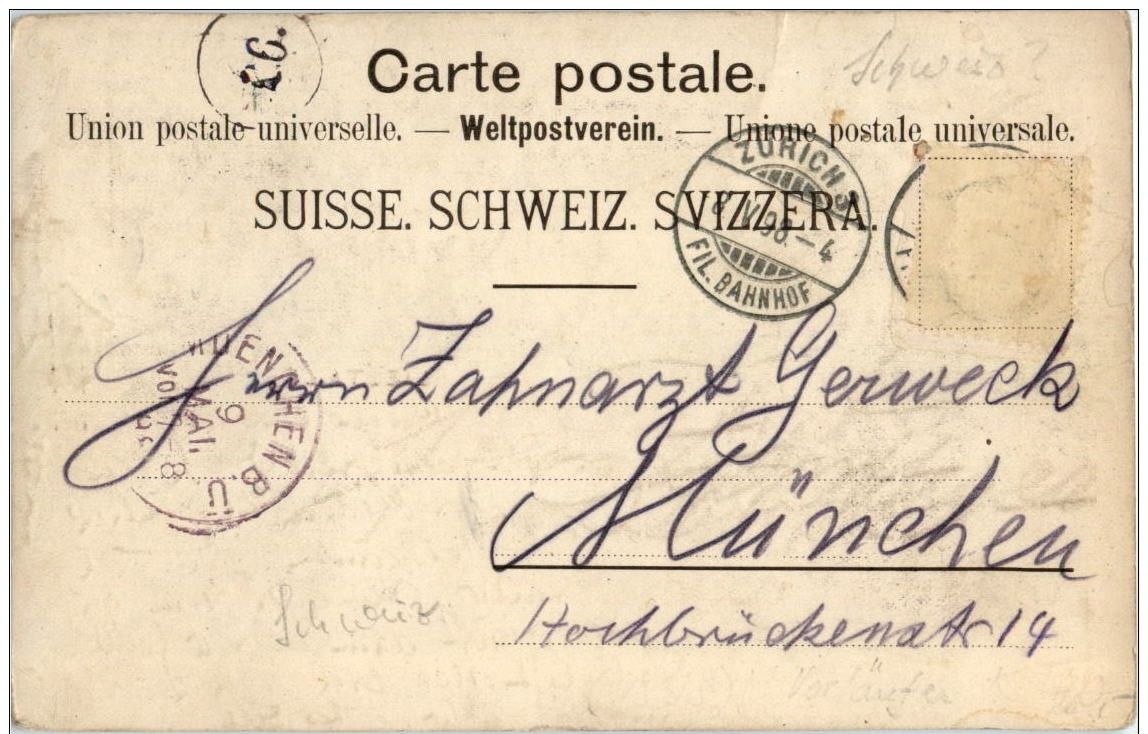 26.
Carte postale.
Schweiz?
Union postale universelle. — Weltpostverein. — Unione postale universale.
SUISSE. SCHWEIZ. SVIZZERA.
ZÜRICH 3
V. 98. – 4
FIL. BAHNHOF
MUENCHEN B.Ü
9
MAI.
VOR 7-8
Herrn Zahnarzt Gerweck
München
Hochbrückenstr 14
Schweiz
Vorläufer